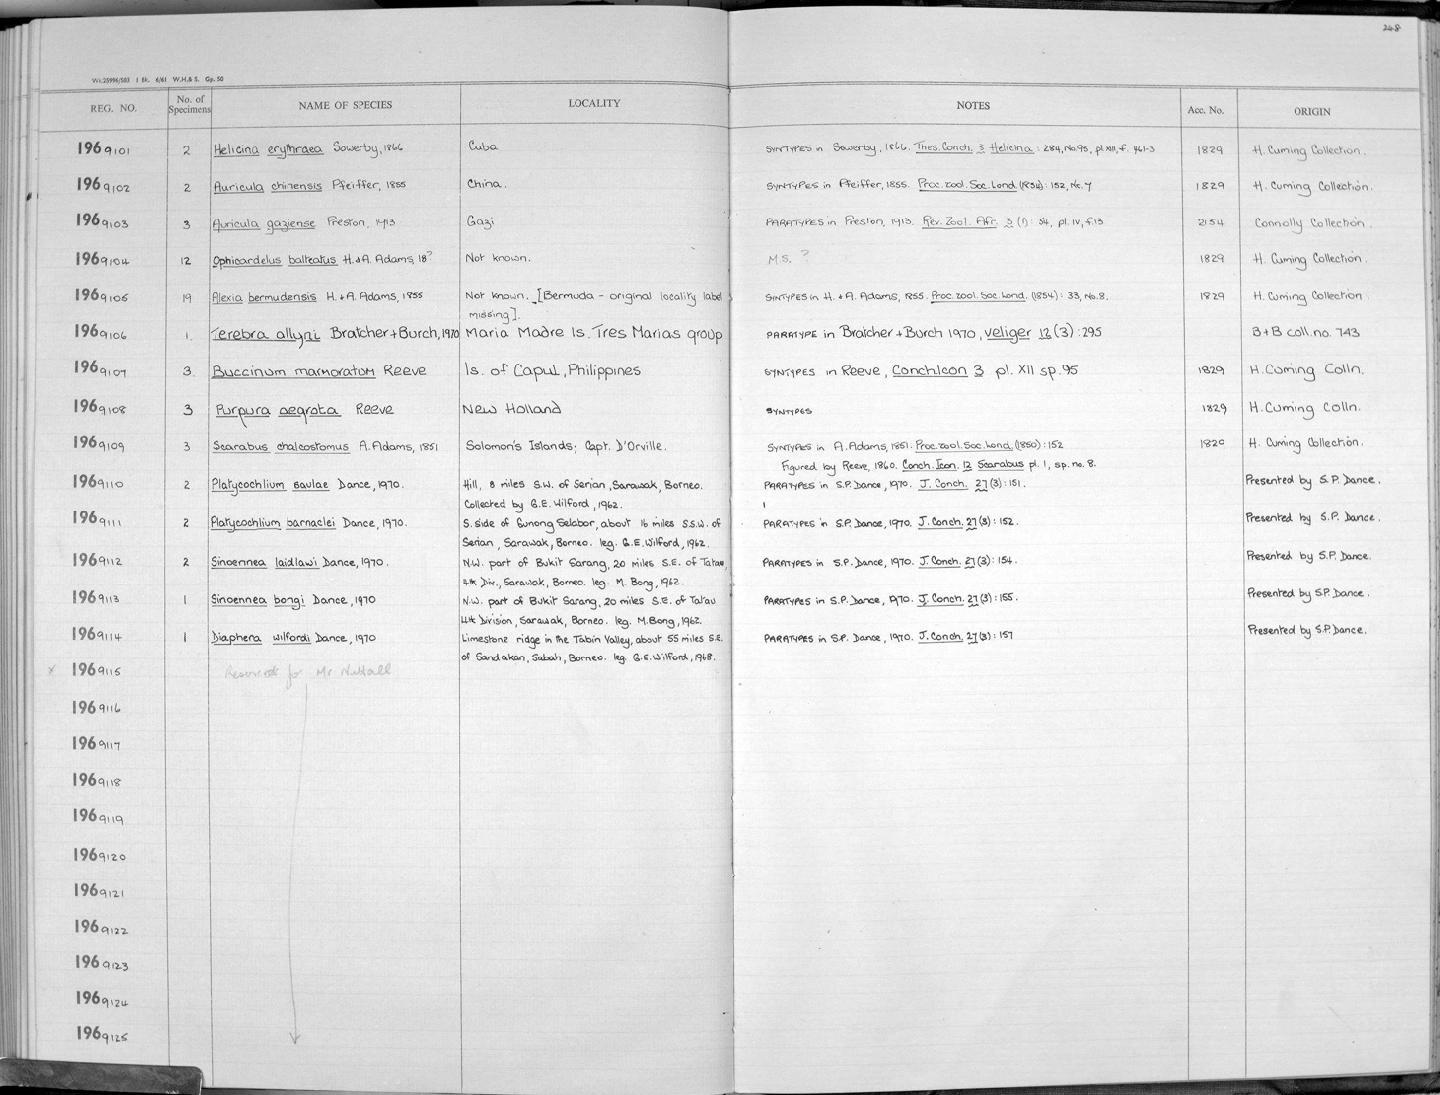 248
Wt.25996/503 1 Bk. 6/61 W.H.& S. Gp. 50
REG. NO. No. of Specimens NAME OF SPECIES LOCALITY NOTES Acc. No. ORIGIN
1969101 2 Helicina erythraea Sowerby, 1866 Cuba SYNTYPES in Sowerby, 1866. Thes. Conch. 3 Helicina : 284, No.95, pl XII, f. 461-3 1829 H. Cuming Collection.
1969102 2 Auricula chinensis Pfeiffer, 1855 China. SYNTYPES in Pfeiffer, 1855. Proc. zool. Soc. Lond. (1854) : 152, No. 7 1829 H. Cuming Collection.
1969103 3 Auricula gaziense Preston, 1913 Gazi PARATYPES in Preston, 1913. Rev. Zool. Afr. 3 (1) : 54, pl. IV, f.13 2154 Connolly Collection.
1969104 12 Ophicardelus balteatus H. & A. Adams, 18? Not known. M.S. ? 1829 H. Cuming Collection.
1969105 19 Alexia bermudensis H. & A. Adams, 1855 Not known. [Bermuda - original locality label SYNTYPES in H. & A. Adams, 1855. Proc. zool. Soc. Lond. (1854) : 33, No. 8. 1829 H. Cuming Collection
missing].
1969106 1. Terebra allyni Bratcher + Burch, 1970 Maria Madre Is. Tres Marias group PARATYPE in Bratcher + Burch 1970, veliger 12 (3) : 295 B + B coll. no. 743
1969107 3 Buccinum marmoratum Reeve Is. of Capul, Philippines SYNTYPES in Reeve, Conch Icon 3 pl. XII sp. 95 1829 H. Cuming Colln.
1969108 3 Purpura aegrota Reeve New Holland SYNTYPES 1829 H. Cuming Colln.
1969109 3 Scarabus chalcostomus A. Adams, 1851 Solomon's Islands; Capt. D'Orville. SYNTYPES in A. Adams, 1851. Proc. zool. Soc. Lond. (1850) : 152 1829 H. Cuming Collection.
Figured by Reeve, 1860. Conch. Icon. 12 Scarabus pl. 1, sp. no. 8.
1969110 2 Platycochlium saulae Dance, 1970. Hill, 8 miles S.W. of Serian, Sarawak, Borneo. PARATYPES in S.P. Dance, 1970. J. Conch. 27 (3) : 151. Presented by S. P. Dance.
Collected by G.E. Wilford, 1962.
1969111 2 Platycochlium barnaclei Dance, 1970. S. side of Gunong Selabor, about 16 miles S.S.W. of PARATYPES in S.P. Dance, 1970. J. Conch. 27 (3) : 152. Presented by S. P. Dance.
Serian, Sarawak, Borneo. leg. G.E. Wilford, 1962.
1969112 2 Sinoennea laidlawi Dance, 1970. N.W. part of Bukit Sarang, 20 miles S.E. of Tatau, PARATYPES in S.P. Dance, 1970. J. Conch. 27 (3) : 154. Presented by S.P. Dance.
4th Div., Sarawak, Borneo. leg. M. Bong, 1962.
1969113 1 Sinoennea bongi Dance, 1970 N.W. part of Bukit Sarang, 20 miles S.E. of Tatau PARATYPES in S.P. Dance, 1970. J. Conch. 27 (3) : 155. Presented by S.P. Dance.
4th Division, Sarawak, Borneo. leg. M. Bong, 1962.
1969114 1 Diaphera wilfordi Dance, 1970 Limestone ridge in the Tabin Valley, about 55 miles S.E. PARATYPES in S.P. Dance, 1970. J. Conch. 27 (3) : 157 Presented by S.P. Dance.
of Sandakan, Sabah, Borneo. leg. G.E. Wilford, 1968.
x 1969115 Reserved for Mr Nuttall
1969116
1969117
1969118
1969119
1969120
1969121
1969122
1969123
1969124
1969125